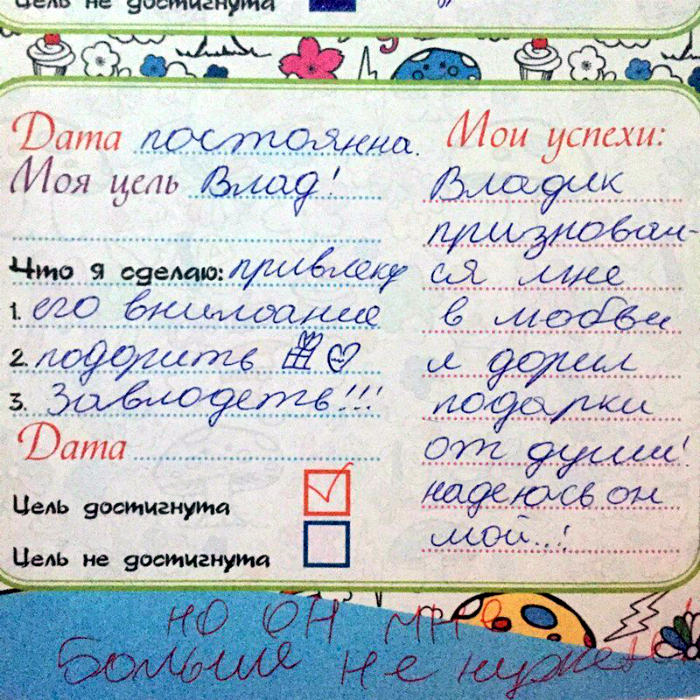 Цель не достигнута
Дата постоянна.
Моя цель Влад!
Что я сделаю: привлеку
1. его внимание
2. подарить
3. Завладеть!!!
Дата
Цель достигнута
Цель не достигнута
Мои успехи:
Владик
признавал-
ся мне
в любви
и дарил
подарки
от души!
надеюсь он
мой..!
но он мне
больше не нужен!